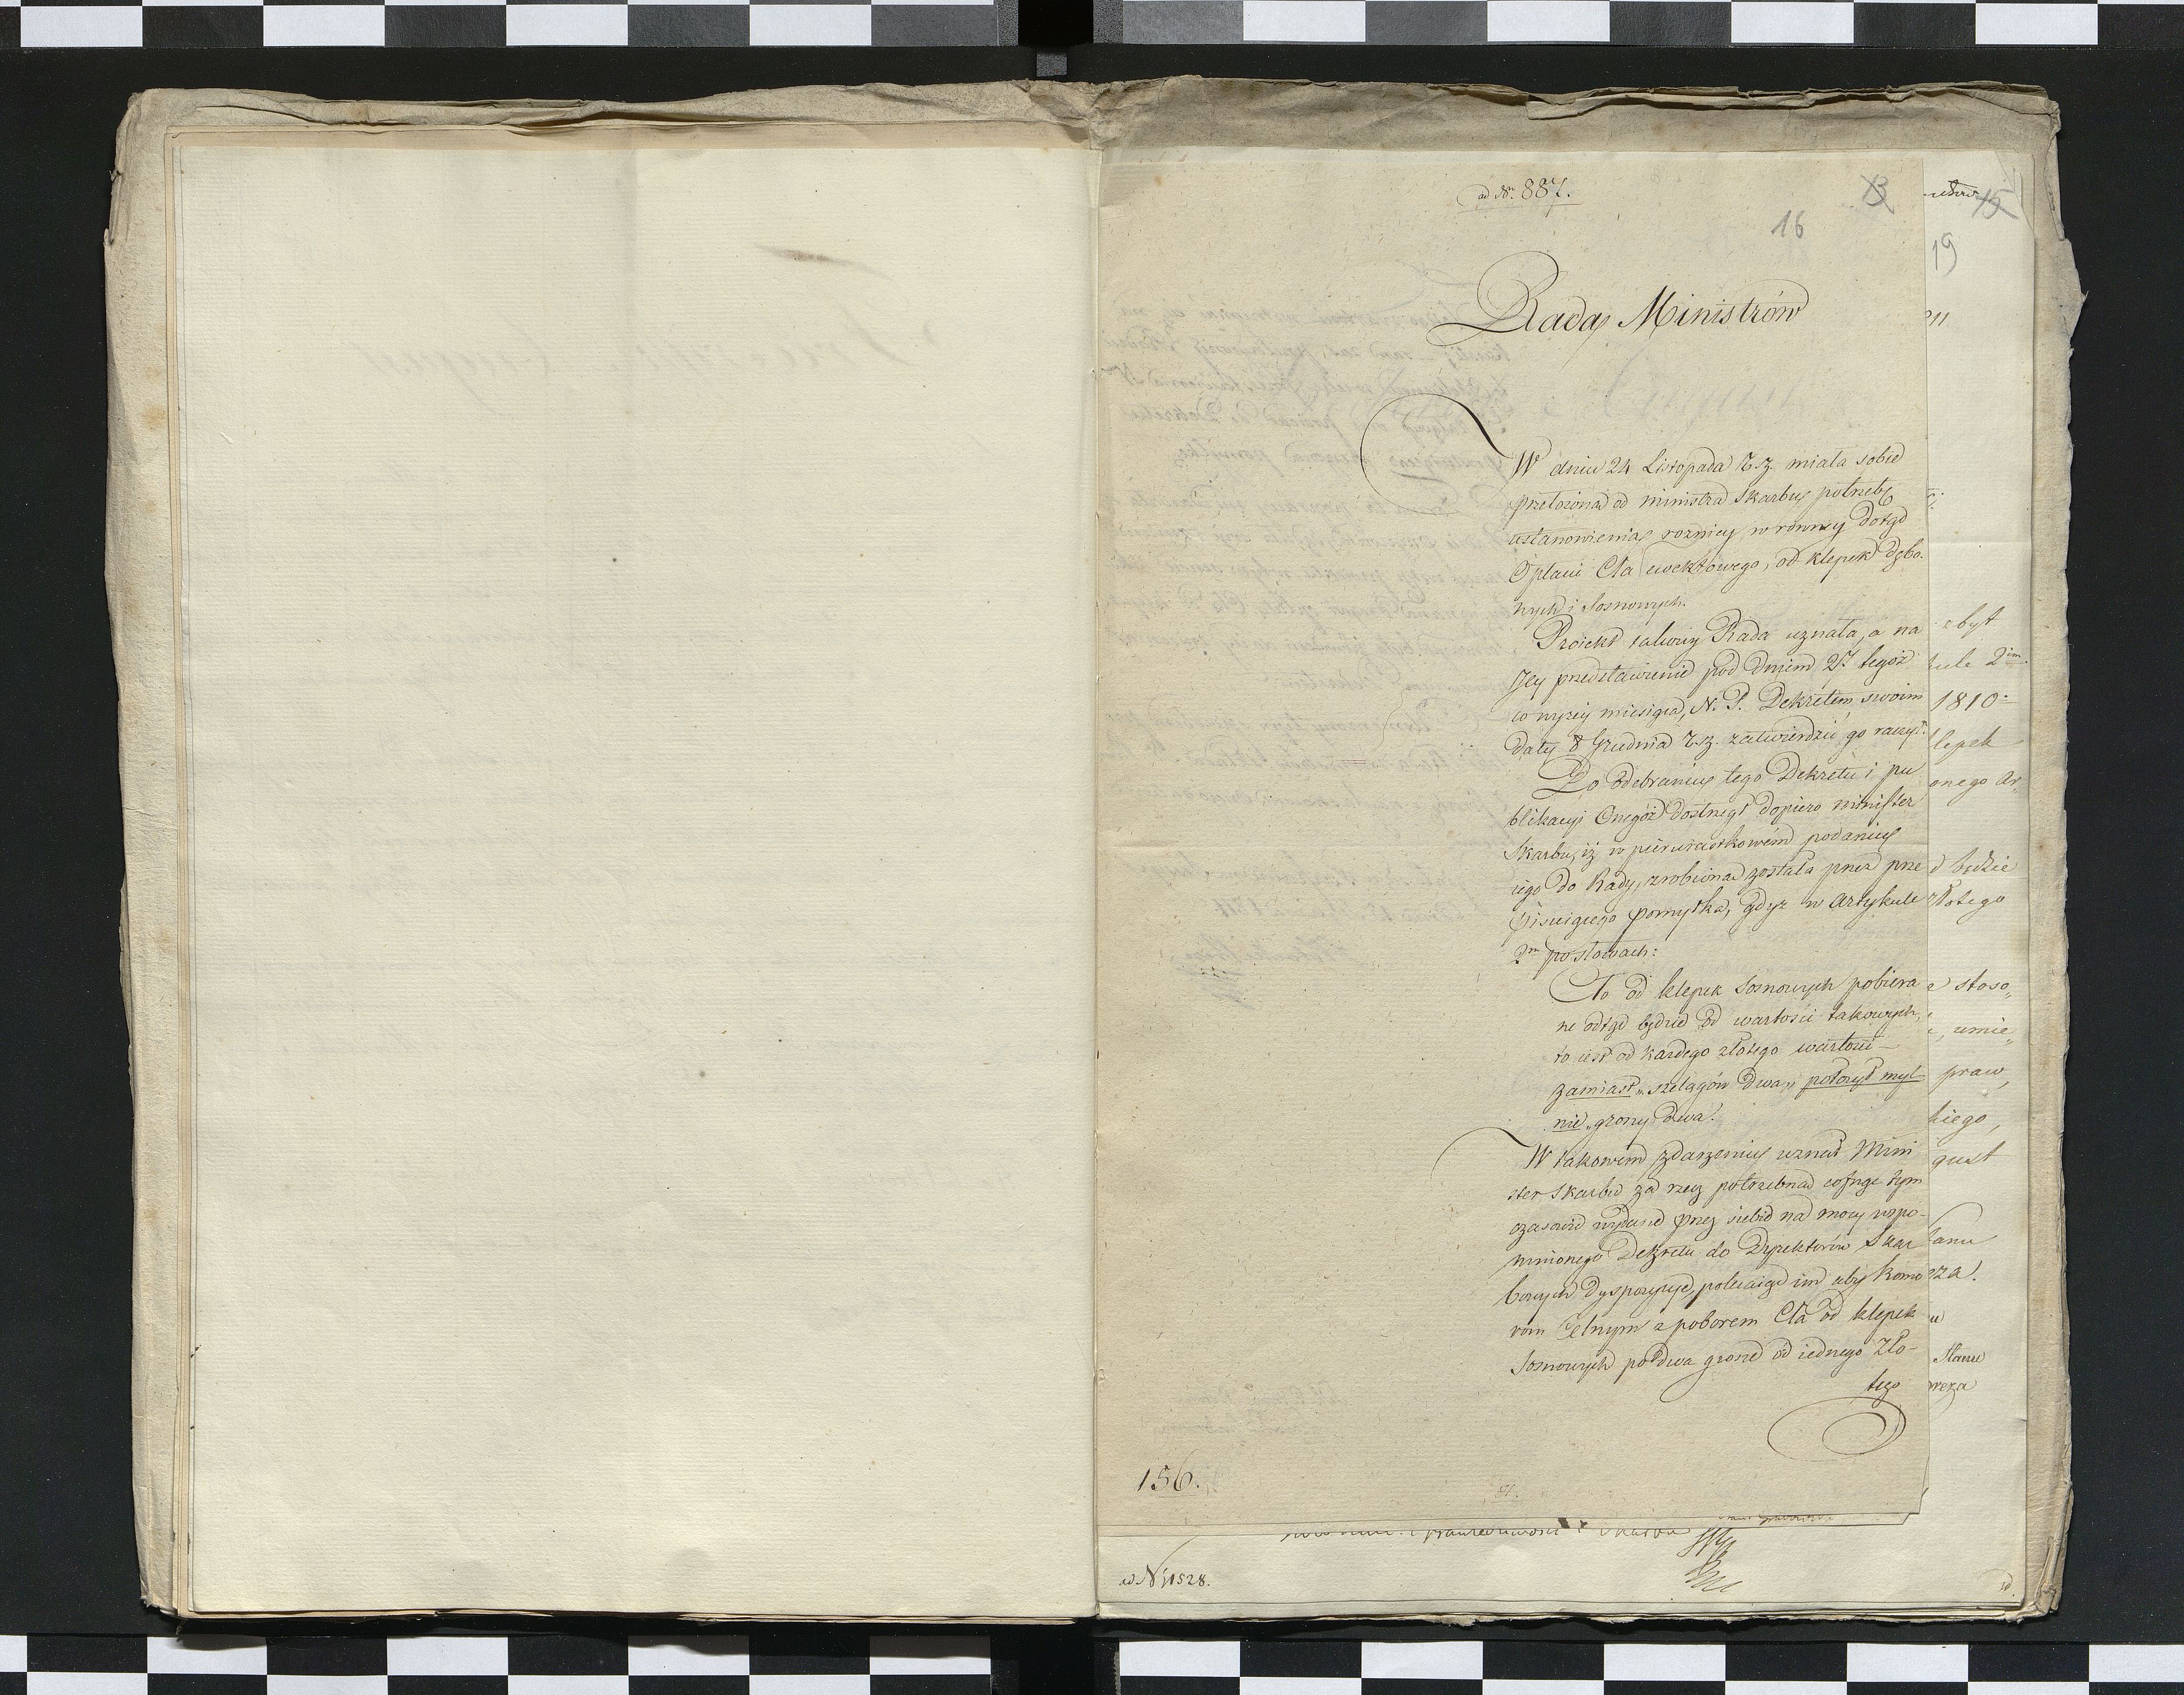 ad Nr. 887.
13
16
Rada Ministrów
W dniu 24 Listopada r. z. miała sobie
przełożoną od ministra Skarbu potrzebę
ustanowienia rożnicy w rowney dotąd
Opłacie Cła ewektowego, od klepek dębo-
wych i Sosnowych.
Proiekt takowy Rada uznała, a na
Jey przedstawienie pod dniem 27. tegoż
co wyżey miesiąca, N. P. Dekretem swoim
daty 8 Grudnia r. z. zatwierdzić go raczył.
Po odebraniu tego Dekretu i pu
blikacyi Onegóż dostrzegł dopiero minister
Skarbu, iż w pierwiastkowém podaniu
iego do Rady, zrobiona została przez prze
pisuiącego pomyłka, gdyż w Artykule
2m po słowach:
Cło od klepek Sosnowych pobiera
ne odtąd będzie od wartości takowych,
to iest od każdego złotego wartości —
zamiast „szelągów dwa„ położył myl-
nie „groszy dwa.
W takowem zdarzeniu uznał Mini
ster Skarbu za rzecz potrzebną cofnąć tym
czasowie wydane przez siebie na mocy wspo-
mnionego Dekretu do Dyrektorów Skar
bowych dyspozycye, polecaiąc im aby Komo
rom Celnym z poborem Cła od klepek
Sosnowych po dwa grosze od iednego Zło-
tego
156.
15
19
zbyt
kule 2im.
1810
klepek
onego Ar,
będzie
złotego
stoso„
umie„
praw,
kiego,
gust
Stanu
ad N 1528.